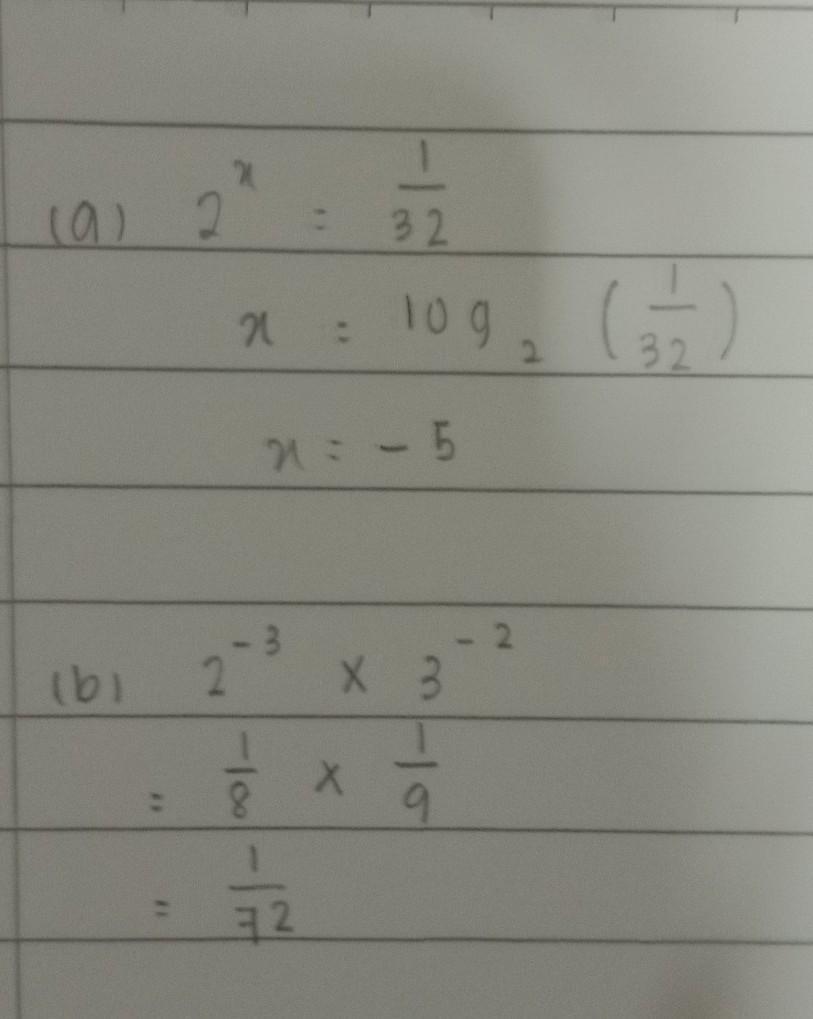 (a) 2^x = 1/32
x = log₂ (1/32)
x = - 5
(b) 2^-3 × 3^-2
= 1/8 × 1/9
= 1/72